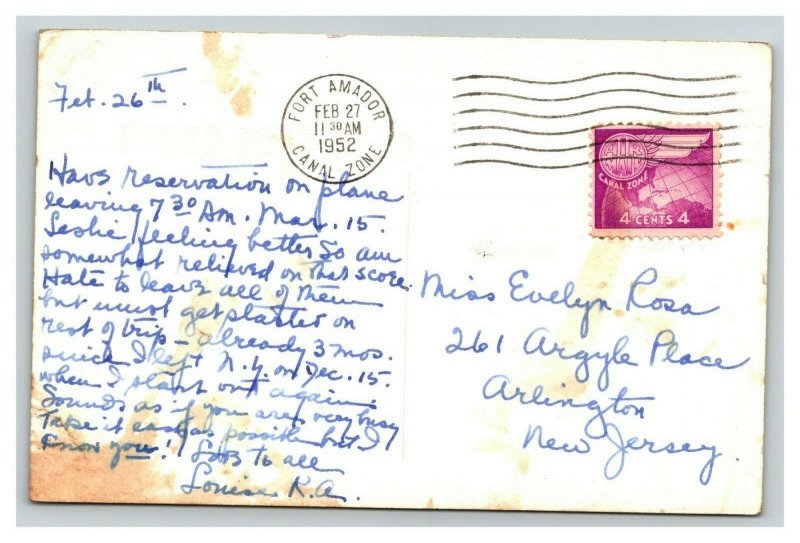 Feb. 26th.
FORT AMADOR
FEB 27
11 30 AM
1952
CANAL ZONE
AIR MAIL
CANAL ZONE
4 CENTS 4
Have reservation on plane
leaving 7 30 Am. Mar. 15.
Leslie feeling better so am
somewhat relieved on that score.
Hate to leave all of them
but must get started on
rest of trip - already 3 mos.
since I left N.Y. on Dec. 15.
when I start out again.
Sounds as if you are very busy
Take it easy as possible but I
know you! Love to all
Louise K.A.
Miss Evelyn Rosa
261 Argyle Place
Arlington
New Jersey.